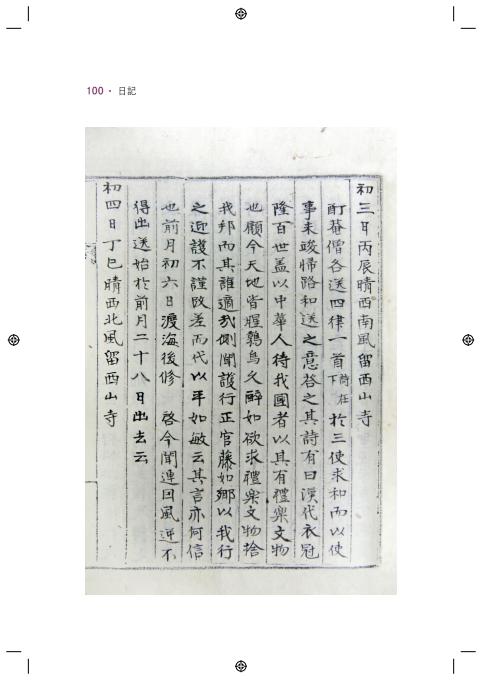 100 · 日記
初三日丙辰晴西南風留西山寺
酊菴僧各送四律一首詩在下於三使求和而以使
事未竣歸路和送之意答之其詩有曰漢代衣冠
隆百世盖以中華人待我國者以其有禮樂文物
也顧今天地皆腥鶉鳥久醉如欲求禮樂文物捨
我邦而其誰適哉側聞護行正官藤如鄕以我行
之迎護不謹改差而代以平如敏云其言亦何信
也前月初六日渡海後修 啓今聞連因風逆不
得出送始於前月二十八日出去云
初四日丁巳晴西北風留西山寺